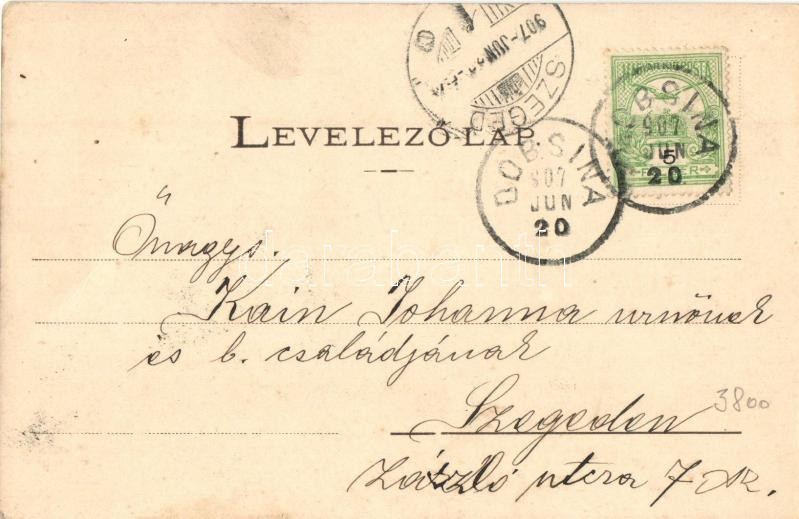 LEVELEZŐ-LAP.
SZEGED
907-JUN
MAGYAR KIR. POSTA
5
DOBSINA
907
JUN
20
DOBSINA
907
JUN
20
darabanth
Őnagys.
Kain Johanna urnőnek
és b. családjának
Szegeden
3800
László utcza 7